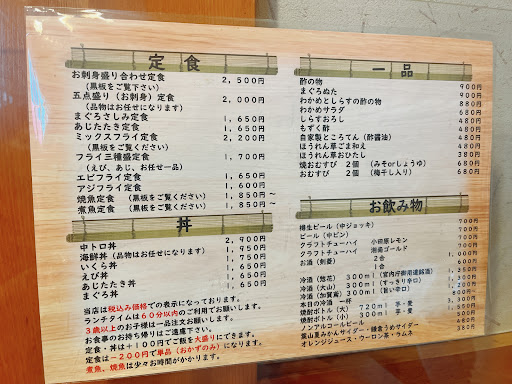 定食
お刺身盛り合わせ定食 2,500円
(黒板をご覧下さい)
五点盛り(お刺身)定食 2,000円
(品物はお任せになります)
まぐろさしみ定食 1,650円
あじたたき定食 1,650円
ミックスフライ定食 2,200円
(黒板をご覧ください)
フライ三種盛定食 1,700円
(えび、あじ、お任せ一品)
エビフライ定食 1,650円
アジフライ定食 1,600円
焼魚定食 (黒板をご覧ください) 1,850円~
煮魚定食 (黒板をご覧ください) 1,850円~
丼
中トロ丼 2,900円
海鮮丼 (品物はお任せになります) 1,950円
いくら丼 1,750円
えび丼
あじたたき丼
まぐろ丼
当店は税込み価格での表示になっております。
ランチタイムは60分以内のご利用でお願いします。
3歳以上のお子様は一品注文お願いします。
お食事のお持ち帰りはご遠慮下さい。
定食・丼は+100円でご飯を大盛りにできます。
定食は-200円で単品(おかずのみ)になります。
煮魚、焼魚は少々お時間がかかります。
一品
酢の物 900円
まぐろぬた 900円
わかめとしらすの酢の物
わかめサラダ
しらすおろし
もずく酢
自家製ところてん(酢醤油) 480円
ほうれん草ごま和え 480円
ほうれん草おひたし
焼おむすび 2個 (みそorしょうゆ)
おむすび 2個 (梅干し入り)
お飲み物
樽生ビール(中ジョッキ) 700円
ビール(中ビン)
クラフトチューハイ 小田原レモン
クラフトチューハイ 湘南ゴールド
お酒(剣菱) 2合
1合
冷酒 300ml (宮内庁御用達銘酒)
冷酒(大山) 300ml (すっきり辛口)
冷酒 300ml (旨い辛口)
本日の冷酒 一杯
焼酎ボトル(大) 720ml 芋・麦
焼酎ボトル(小) 300ml 芋・麦
ノンアルコールビール
葉山夏みかんサイダー・鎌倉うめサイダー
オレンジジュース・ウーロン茶・ラムネ